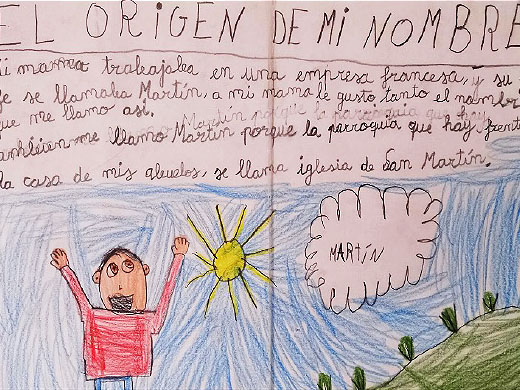 EL ORIGEN DE MI NOMBRE
Mi mama trabajaba en una empresa francesa, y su
jefe se llamaba Martín, a mi mama le gusto tanto el nombre
que me llamo asi.
también me llamo Martín porque la parroquia que hay frente
la casa de mis abuelos, se llama iglesia de San Martín.
MARTÍN